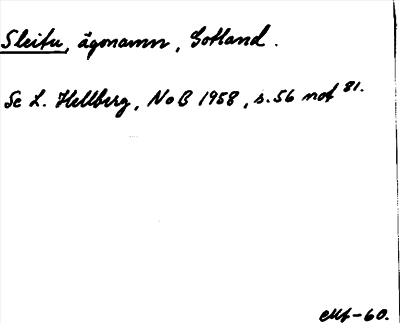 Sleitu, ägonamn, Gotland.
Se L. Hellberg, NoB 1958, s. 56 not 81.
Mf-60.